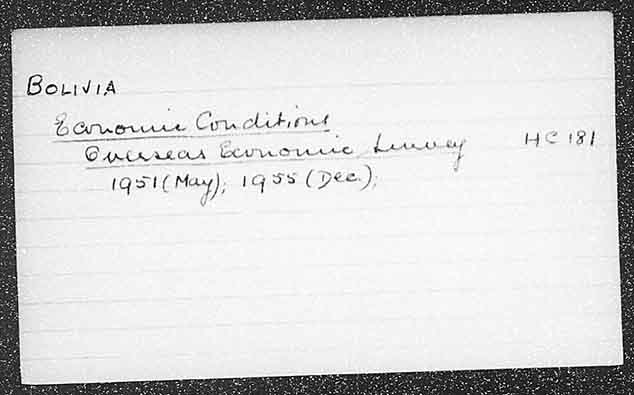 BOLIVIA
Economic Conditions
Overseas Economic Survey HC 181
1951 (May); 1955 (Dec.);